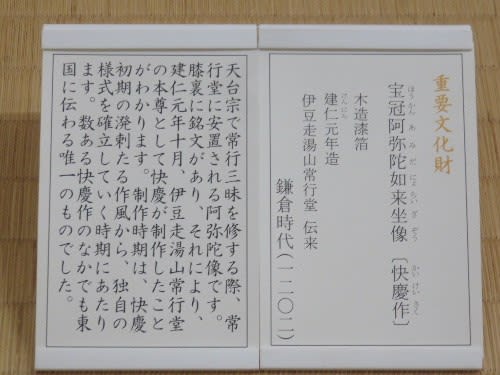 重要文化財
ほうかん あ み だ にょ らい ざ ぞう かい けい さく
宝冠阿弥陀如来坐像〔快慶作〕
木造漆箔
けんにん
建仁元年造
伊豆走湯山常行堂 伝来
鎌倉時代(一二〇二)
天台宗で常行三昧を修する際、常
行堂に安置される阿弥陀像です。
膝裏に銘文があり、それにより、
建仁元年十月、伊豆走湯山常行堂
の本尊として快慶が制作したこと
がわかります。制作時期は、快慶
初期の溌剌たる作風から、独自の
様式を確立していく時期にあたり
ます。数ある快慶作のなかでも東
国に伝わる唯一のものでした。